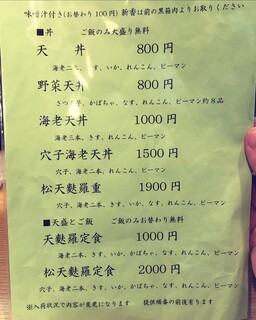 味噌汁付き(お替わり100円) 新香は前の黒箱内よりお取りください
■丼 ご飯のみ大盛り無料
天 丼 800円
海老二本、きす、いか、れんこん、ピーマン
野菜天丼 800円
さつま芋、かぼちゃ、なす、れんこん、ピーマン約8品
海老天丼 1000円
海老三本、きす、なす、れんこん、ピーマン
穴子海老天丼 1500円
穴子、海老二本、なす、れんこん、ピーマン
松天麩羅重 1900円
穴子、海老二本、きす、いか、なす、れんこん、ピーマン
■天盛とご飯 ご飯のみお替わり無料
天麩羅定食 1000円
海老二本、きす、いか、かぼちゃ、なす、れんこん、ピーマン
松天麩羅定食 2000円
穴子、海老二本、きす、いか、かぼちゃ、なす、れんこん、ピーマン
※入荷状況で内容が変更になります 提供順番の前後有ります